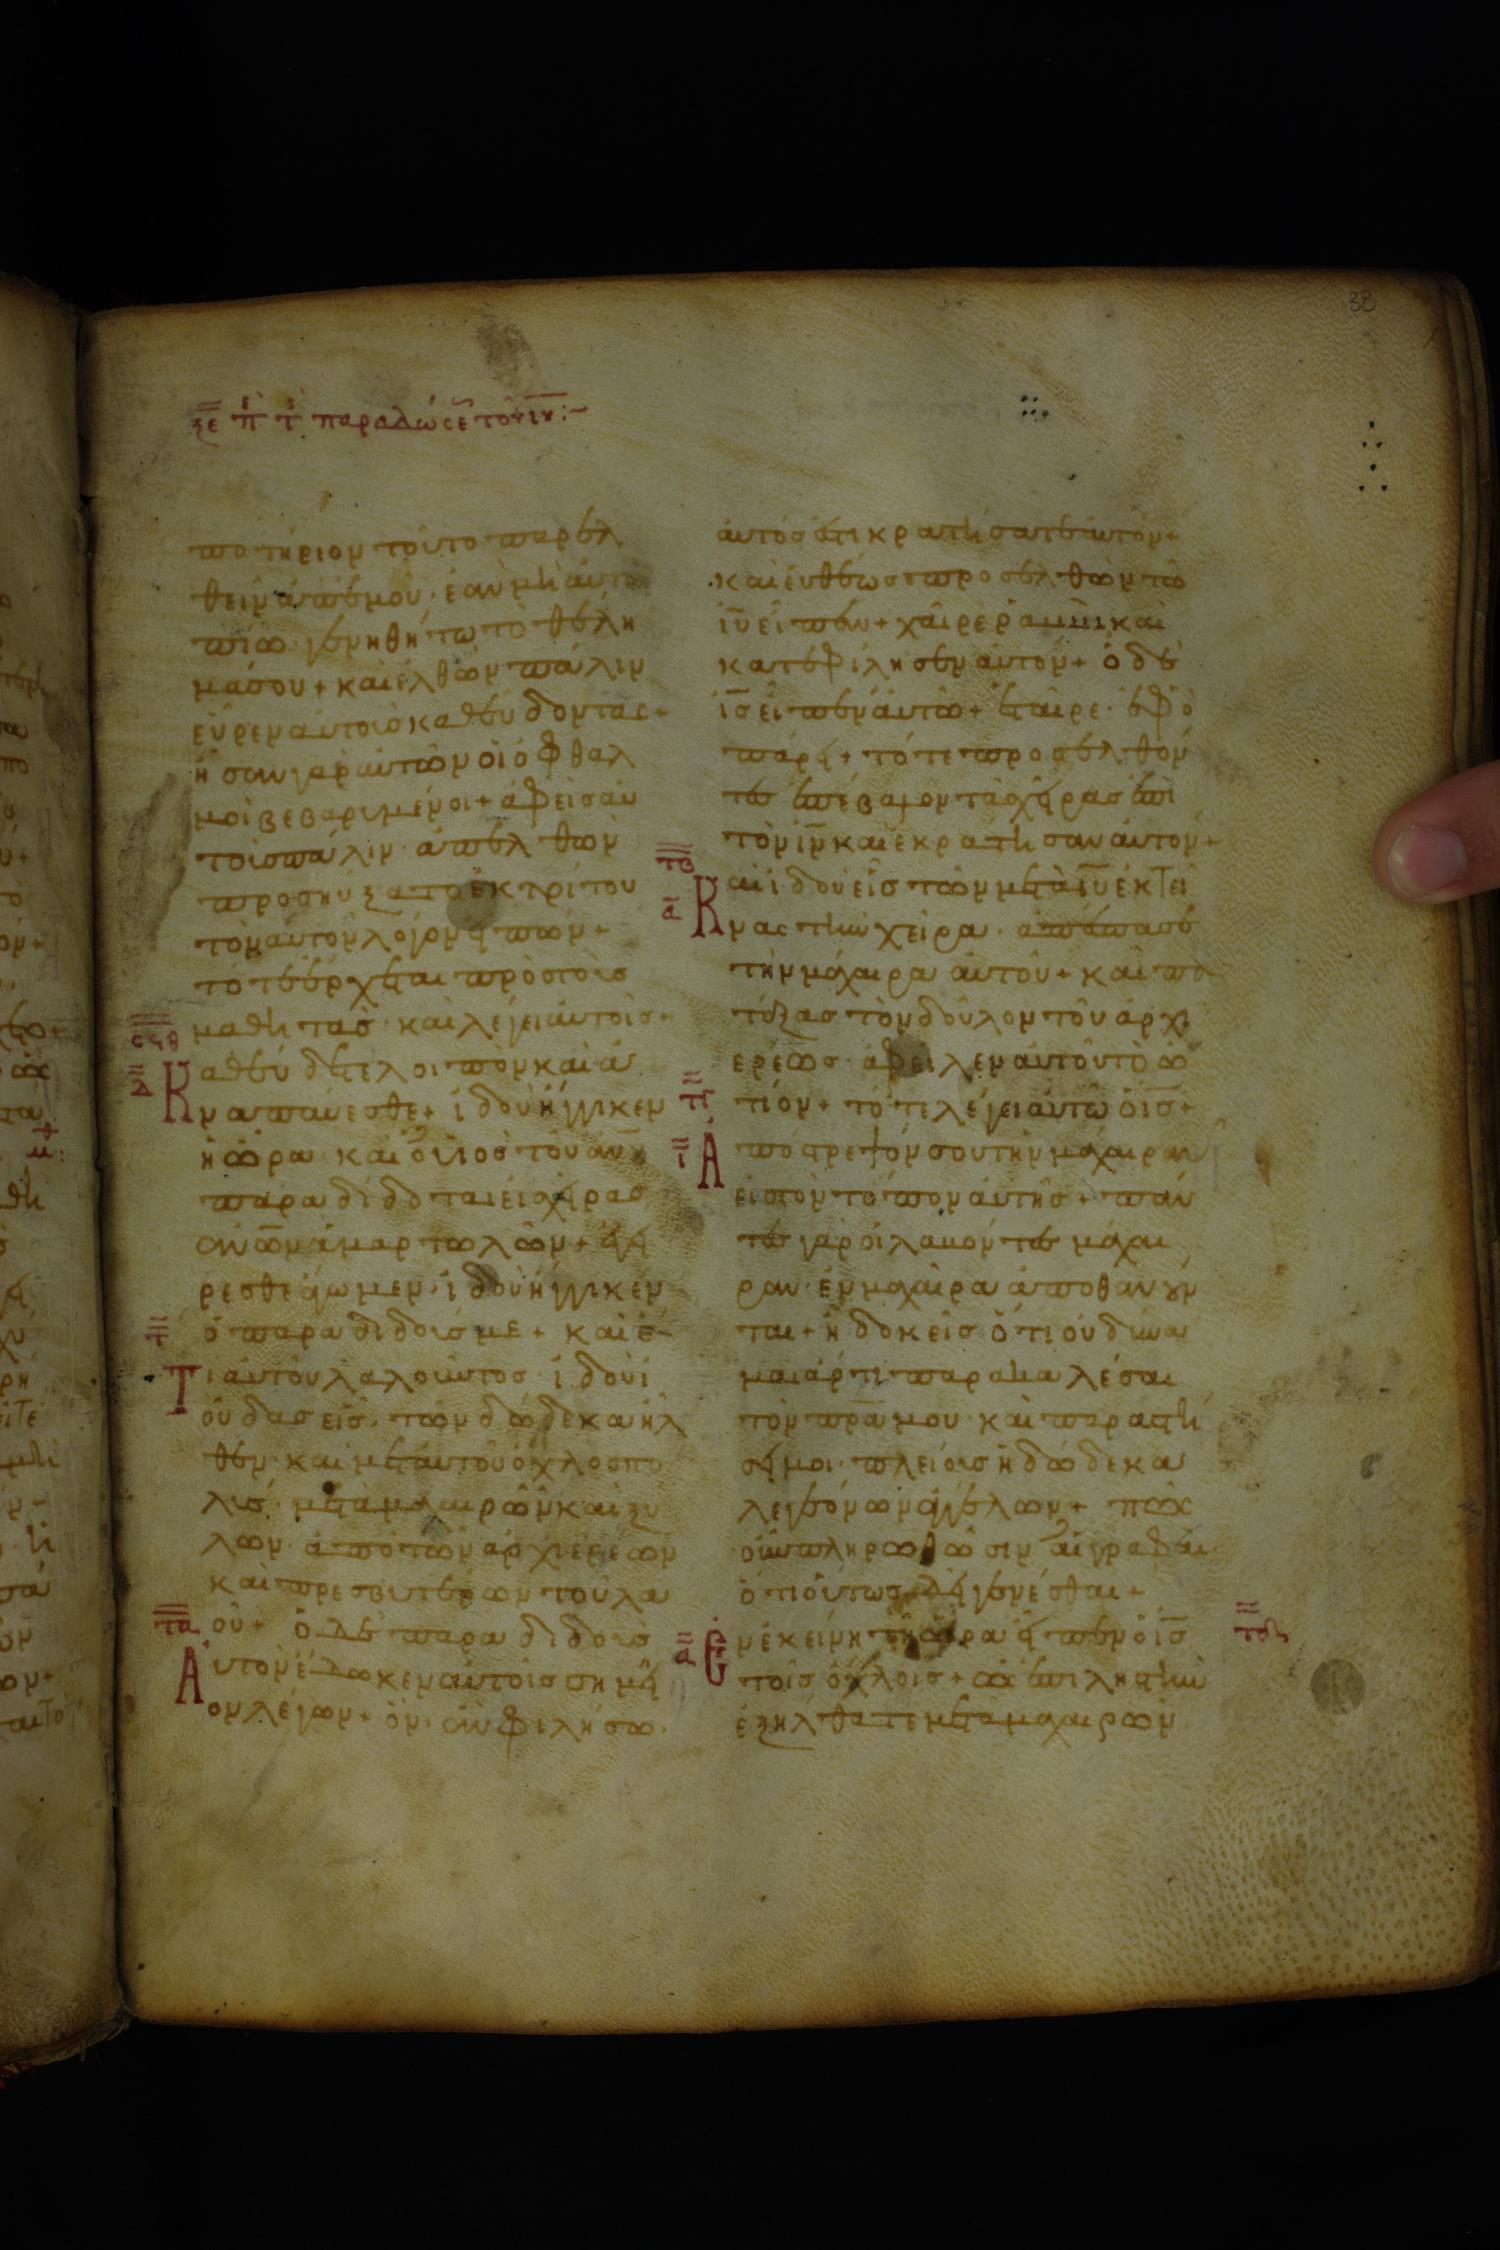 38
ξε πε τς παραδώσε τοῦ ιυ:~
ποτήριον τοῦτο παρελ
θεῖν ἀπεμοῦ· ἐὰν μὴ αὐτὸ
πίω· γενηθήτω τὸ θέλη
μά σου + καὶ ἐλθὼν πάλιν
εὗρεν αὐτοὺς καθεύδοντας +
ἦσαν γὰρ αὐτῶν οἱ ὀφθαλ
μοὶ βεβαρυμένοι + ἀφεὶς αὐ
τοὺς πάλιν ἀπελθὼν
προσηύξατο ἐκ τρίτου
τὸν αὐτὸν λόγον εἰπών +
τότε ἔρχεται πρὸς τοὺς
μαθητάς· καὶ λέγει αὐτοῖς +
σϟθ
δ
Καθεύδετε λοιπὸν καὶ ἀ
ναπαύεσθε + ἰδοὺ ἤγγικεν
ἡ ὥρα καὶ ὁ υἱὸς τοῦ ανου
παραδίδοται εἰς χεῖρας
ανων ἁμαρτωλῶν + ἐγεί
ρεσθε ἄγωμεν· ἰδοὺ ἤγγικεν
τ
ὁ παραδιδούς με + καὶ ἔ
Τι αὐτοῦ λαλοῦντος ἰδοὺ ἰ
ούδας εἷς τῶν δώδεκα ἦλ
θεν καὶ μετ αὐτοῦ ὄχλος πο
λύς· μετὰ μαχαιρῶν καὶ ξύ
λων ἀπὸ τῶν ἀρχιερέων
καὶ πρεσβυτέρων τοῦ λα
τα
οῦ + ὁ δὲ παραδιδοὺς
Αὐτὸν ἔδωκεν αὐτοῖς σημεῖ
ον λέγων + ὃν ἂν φιλήσω·
αὐτός ἐστι κρατήσατε αὐτόν +
καὶ εὐθέως προσελθὼν τῷ
ιυ εἶπεν + χαῖρε ῥαββὶ καὶ
κατεφίλησεν αὐτόν + ὁ δὲ
ις εἶπεν αὐτῷ + ἑταῖρε· ἐφ ὃ
πάρει + τότε προσελθόν
τες ἐπέβαλον τὰς χεῖρας ἐπὶ
τὸν ιν καὶ ἐκράτησαν αὐτόν +
τβ
α
Καὶ ἰδοὺ εἷς τῶν μετὰ ιυ ἐκτεί
νας τὴν χεῖρα· ἀπέσπασε
τὴν μάχαιραν αὐτοῦ + καὶ πα
τάξας τὸν δοῦλον τοῦ ἀρχι
ερέως· ἀφεῖλεν αὐτοῦ τὸ ὠ
τγ
τίον + τότε λέγει αὐτῷ ὁ ις +
ι
Ἀπόστρεψόν σου τὴν μάχαιραν
εἰς τὸν τόπον αὐτῆς + πάν
τες γὰρ οἱ λαβόντες μάχαι
ραν ἐν μαχαίρα ἀποθανοῦν
ται + ἢ δοκεῖς ὅτι οὐ δύνα
μαι ἄρτι παρακαλέσαι
τὸν πρα μου· καὶ παραστή
σει μοι πλείους ἢ δώδεκα
λεγεόνων ἀγγέλων + πῶς
οὖν πληρωθῶσιν αἱ γραφαί
ὅτι οὕτως δεῖ γενέσθαι +
τδ
α
Ἐν ἐκείνη τῇ ὥρα εἶπεν ὁ ις
τοῖς ὄχλοις + ὡς ἐπὶ ληστὴν
ἐξήλθατε μετὰ μαχαιρῶν